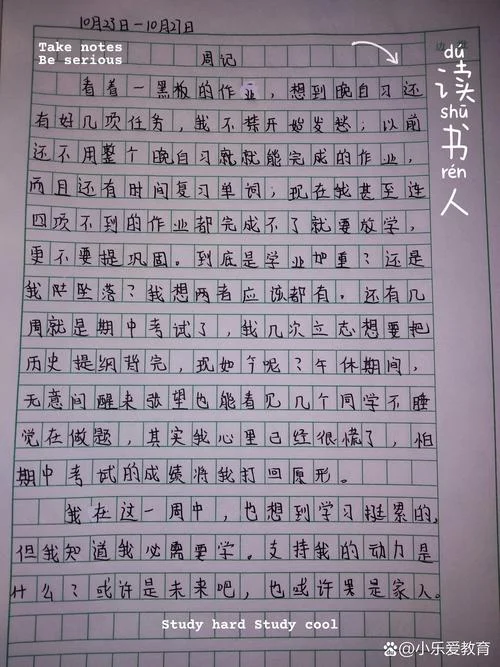 10月23日—10月27日
Take notes
Be serious
周记
边辈
dú
读
shū
书
rén
人
看着一黑板的作业，想到晚自习还
有好几项任务，我不禁开始发愁；以前
还不用整个晚自习就就能完成的作业，
而且还有时间复习单词；现在我甚至连
四项不到的作业都完成不了就要放学，
更不要提巩固。到底是学业加重？还是
我陡坠落？我想两者应该都有。还有几
周就是期中考试了，我几次立志想要把
历史提纲背完，现如今呢？午休期间，
无意间醒来张望也能看见几个同学不睡
觉在做题，其实我心里已经很慌了，怕
期中考试的成绩将我打回原形。
我在这一周中，也想到学习挺累的，
但我知道我必需要学。支持我的动力是
什么？或许是未来吧，也或许是家人。
Study hard Study cool
小乐爱教育